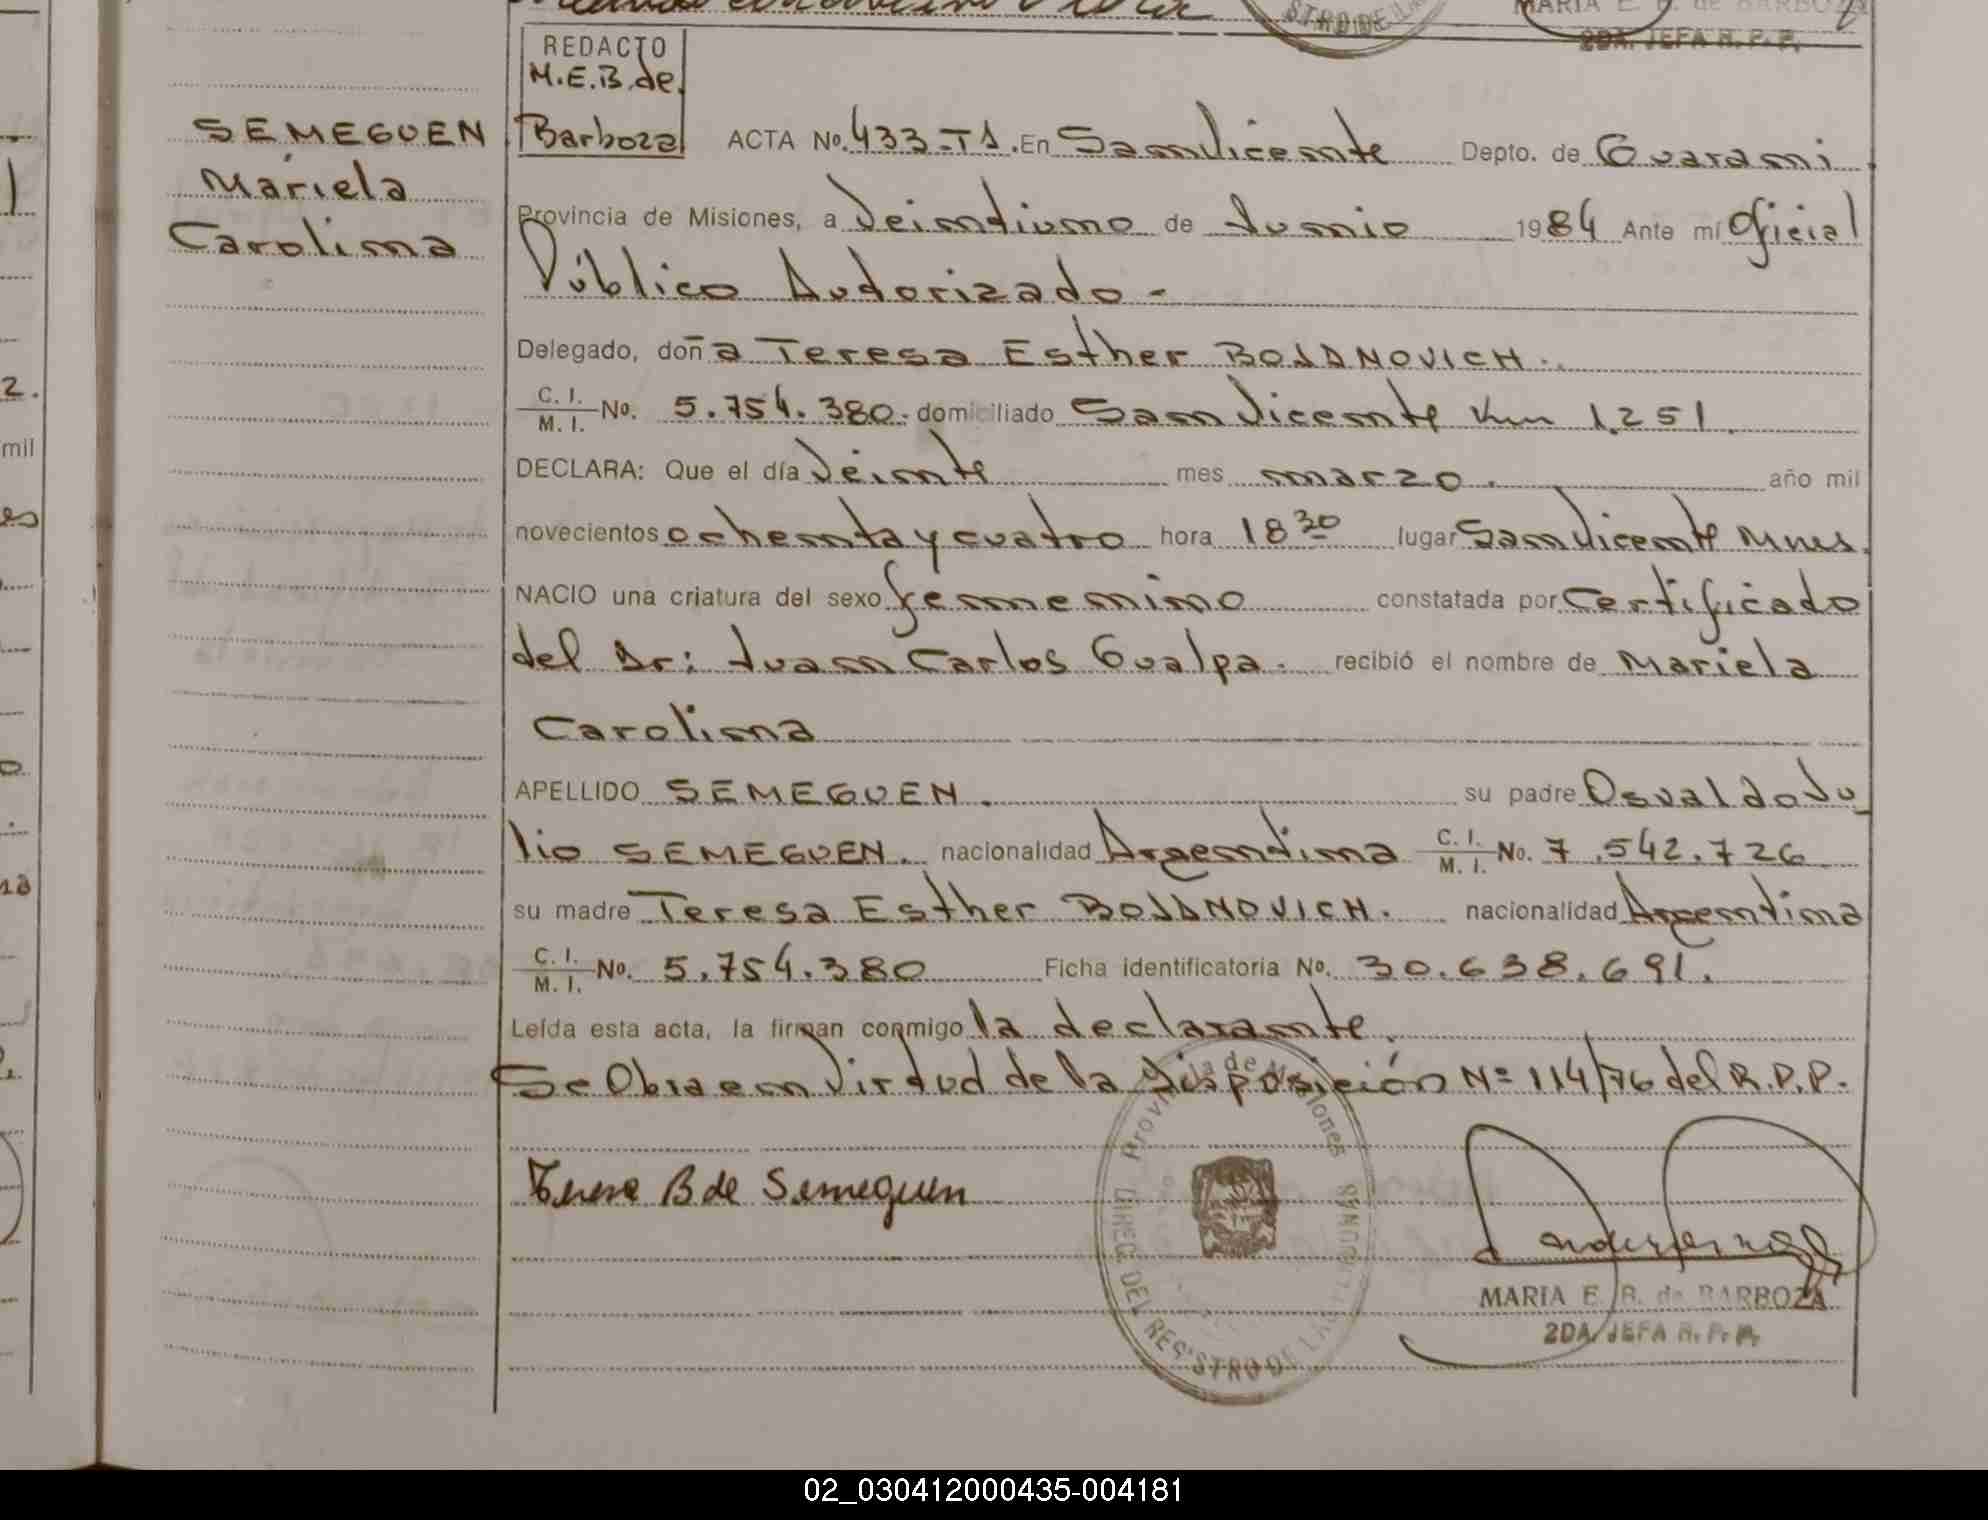 STRO DE LA
MARIA E. B. de BARBOZA
2DA. JEFA R. P. P.
REDACTO
M.E.B. de
Barboza
SEMEGUEN
Mariela
Carolina
ACTA No. 433-T1. En San Vicente Depto. de Guarani
Provincia de Misiones, a Veintiuno de Junio 1984 Ante mí Oficial
Público Autorizado -
Delegado, doña Teresa Esther BOJANOVICH.
C. I.
M. I. No. 5.754.380. domiciliado San Vicente Km 1.251.
DECLARA: Que el día Veinte mes marzo. año mil
novecientos ochenta y cuatro hora 18 30 lugar San Vicente Mnes.
NACIO una criatura del sexo femenino constatada por Certificado
del Dr: Juan Carlos Gualpa. recibió el nombre de Mariela
Carolina
APELLIDO SEMEGUEN. su padre Osvaldo Ju
lio SEMEGUEN. nacionalidad Argentina C. I.
M. I. No. 7.542.726
su madre Teresa Esther BOJANOVICH. nacionalidad Argentina
C. I.
M. I. No. 5.754.380 Ficha identificatoria No. 30.638.691.
Leída esta acta, la firman conmigo la declarante.
Se Obra en Virtud de la Disposición Nº 114/76 del R.P.P.
Provincia de Misiones
DIREC DEL REGISTRO DE LAS
Teresa B de Semeguen
MARIA E. B. de BARBOZA
2DA. JEFA R. P. P.
2.
mil
es
02_030412000435-004181